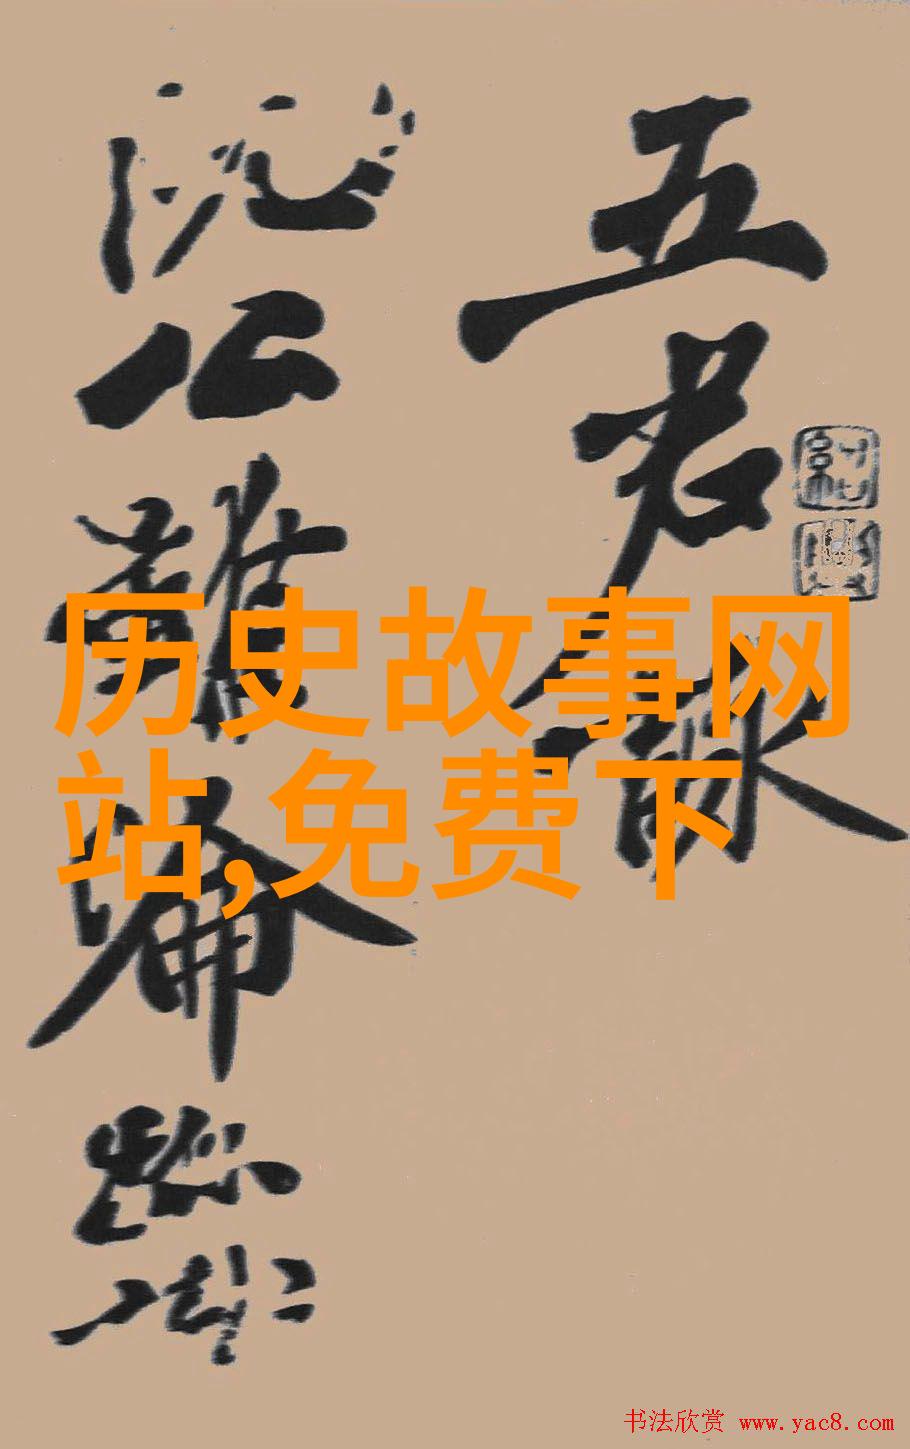 五君詠
阮公雖淪跡
历史故事网
站,免费下
书法欣赏 www.yac8.com